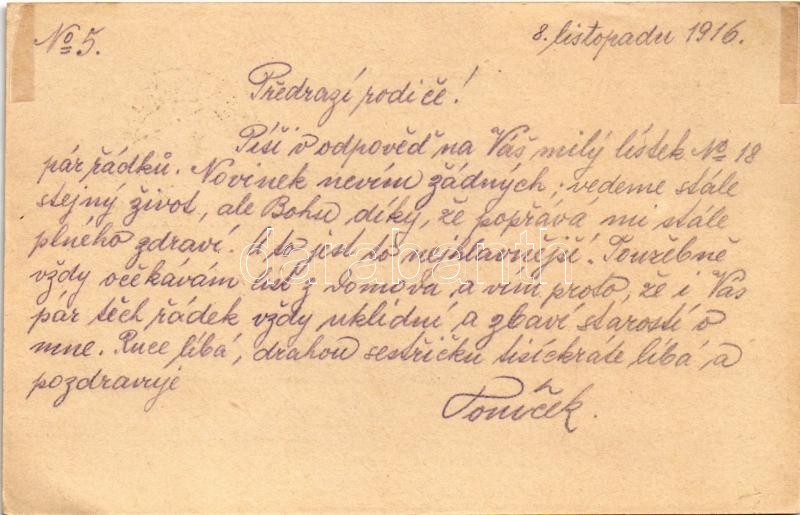 No 5.
8. listopadu 1916.
Předrazí rodiče!
Píši v odpověď na Váš milý lístek No 18
pár řádků. Novinek nevím žádných; vedeme stále
stejný život, ale Bohu díky, že popřává mi stále
plného zdraví. A to jest to nejhlavnější. Toužebně
vždy očekávám list z domova a vím proto, že i Vás
pár těch řádek vždy uklidní a zbaví starostí o
mne. Ruce líbá, drahou sestřičku tisíckráte líbá a
pozdravuje
Toníček.
darabanth